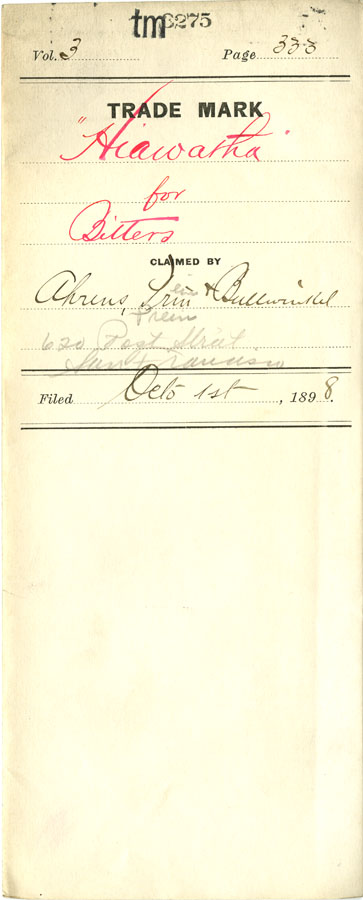 tm 3275
Vol. 3 Page 333
TRADE MARK
"Hiawatha"
for
Bitters
CLAIMED BY
Ahrens, & Bullwinkel
Prein
620 Post Street
San Francisco
Filed Octo 1st, 1898.